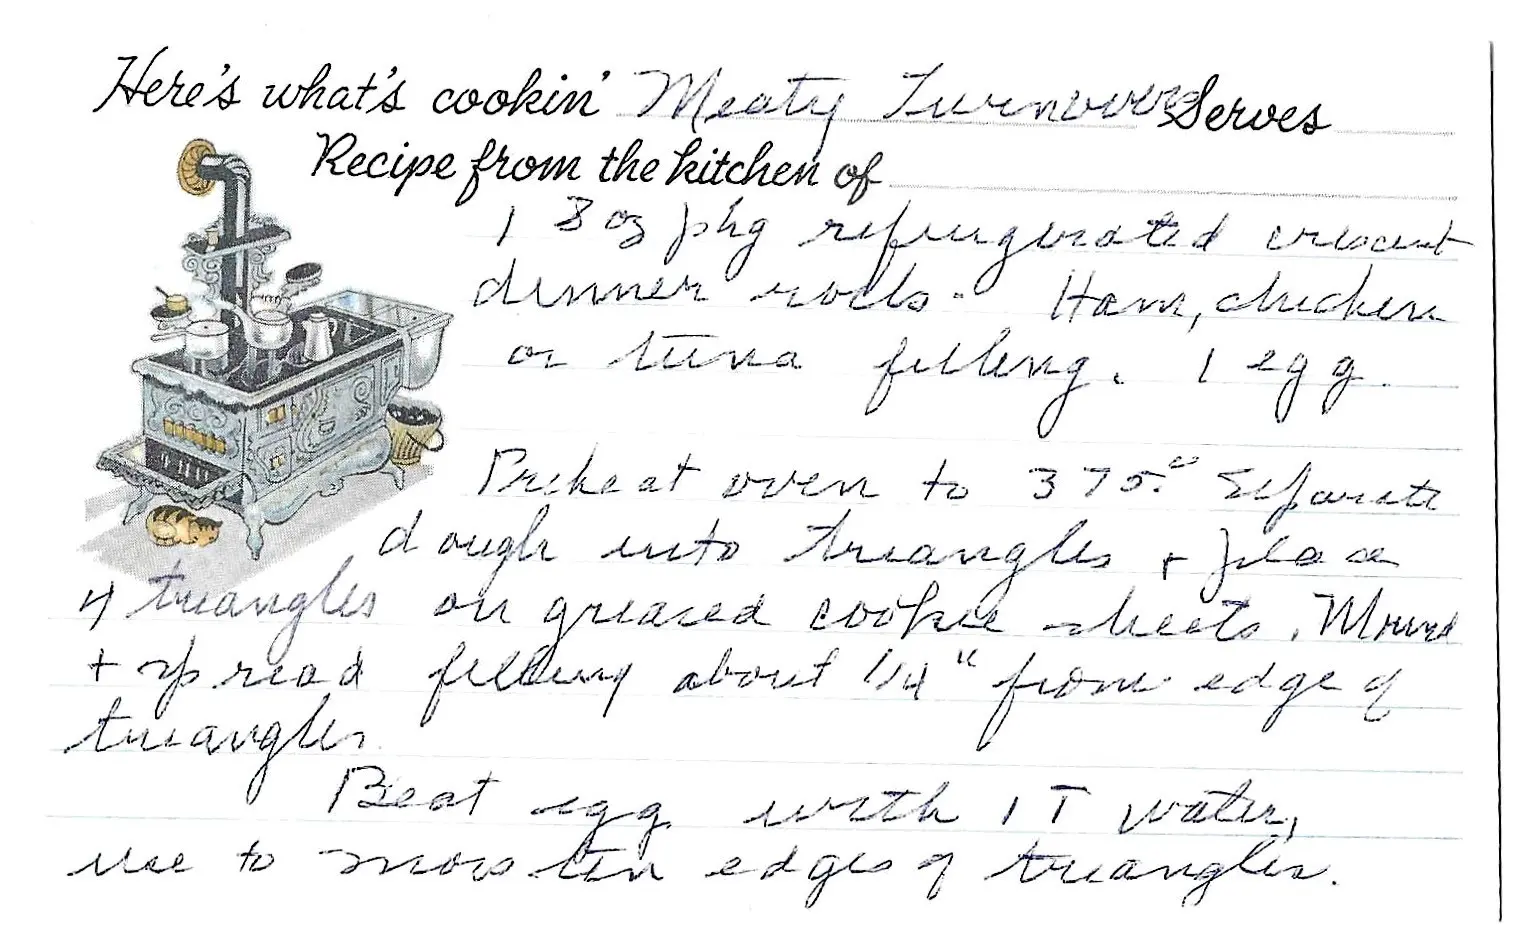 Here's what's cookin' Meaty Turnovers Serves
Recipe from the kitchen of
1 8 oz pkg refrigerated crescent
dinner rolls. Ham, chicken
or tuna filling. 1 egg.
Preheat oven to 375.° Separate
dough into triangles + place
4 triangles on greased cookie sheets. Mound
+ spread filling about 1/4" from edge of
triangles.
Beat egg with 1 T water,
use to moisten edges of triangles.